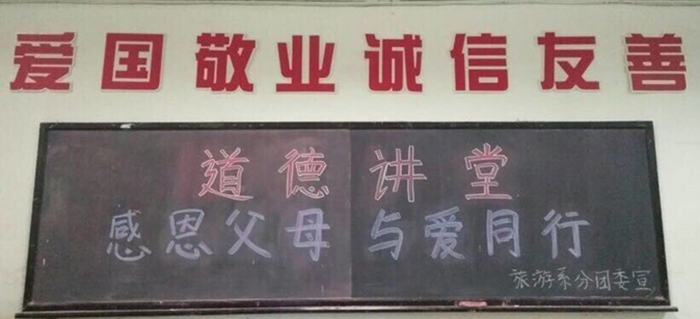 爱国敬业诚信友善
道德讲堂
感恩父母与爱同行
旅游系分团委宣